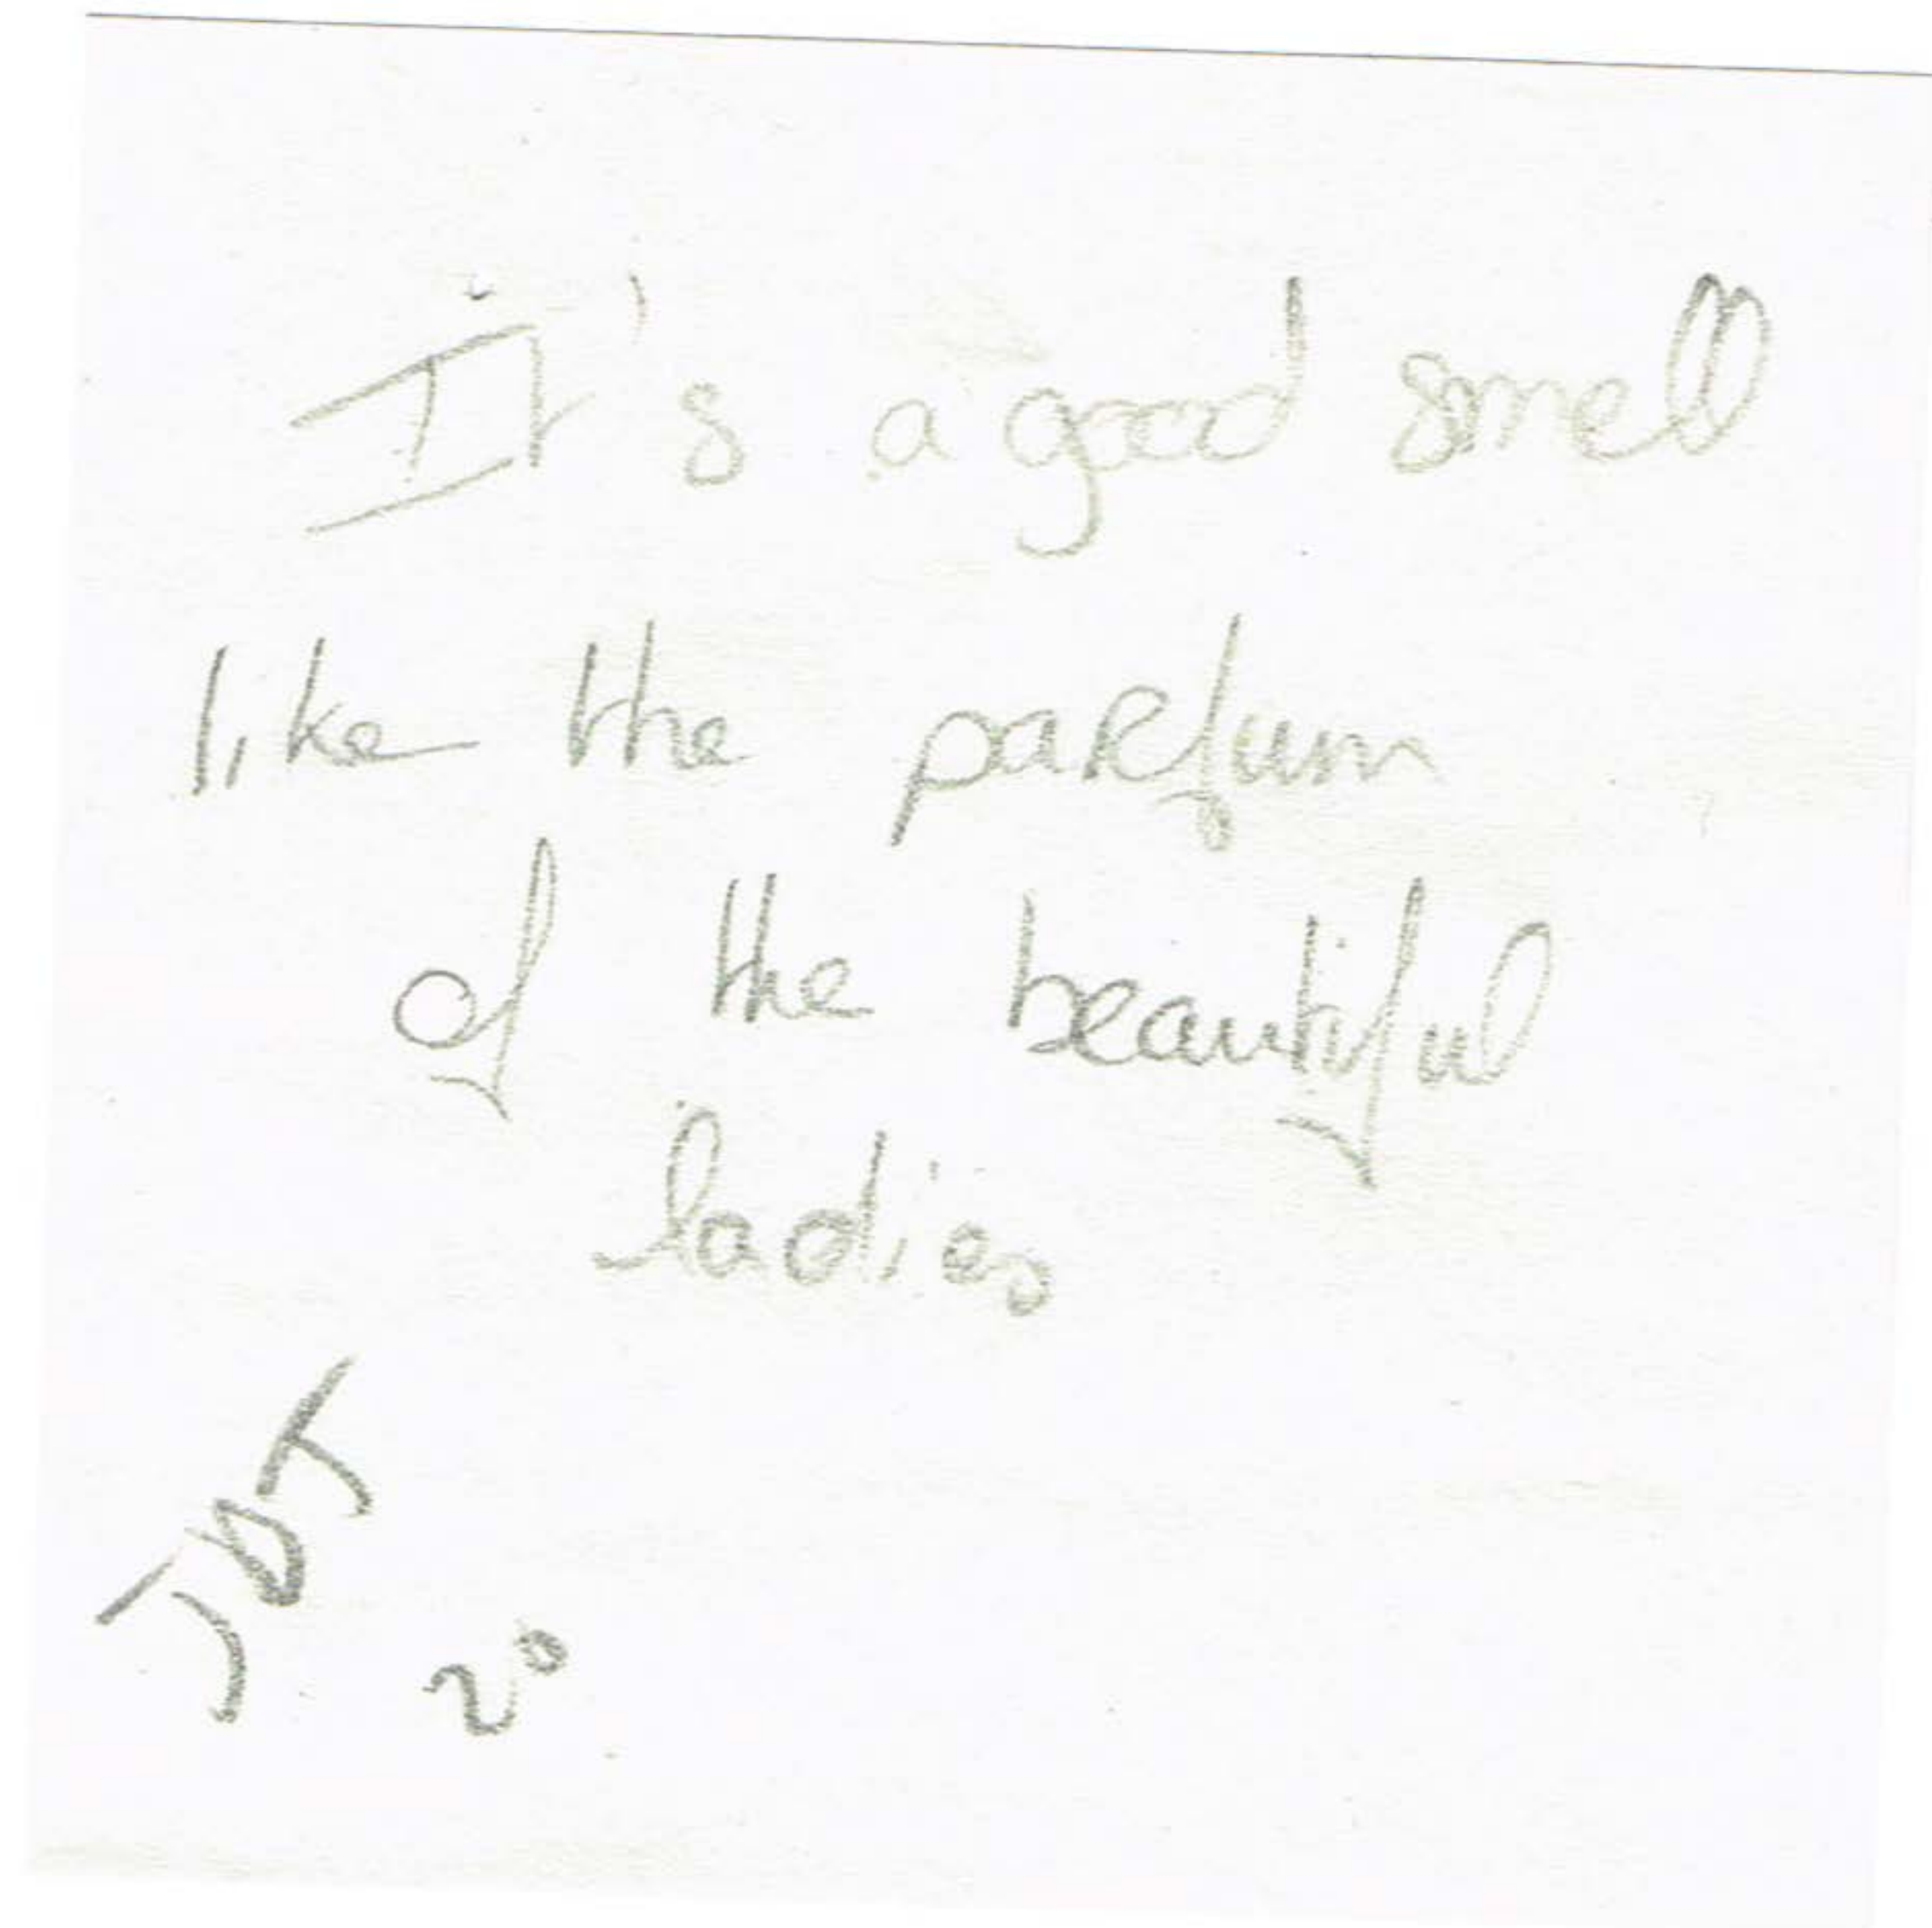 It's a good smell
like the parfum
of the beautiful
ladies
20